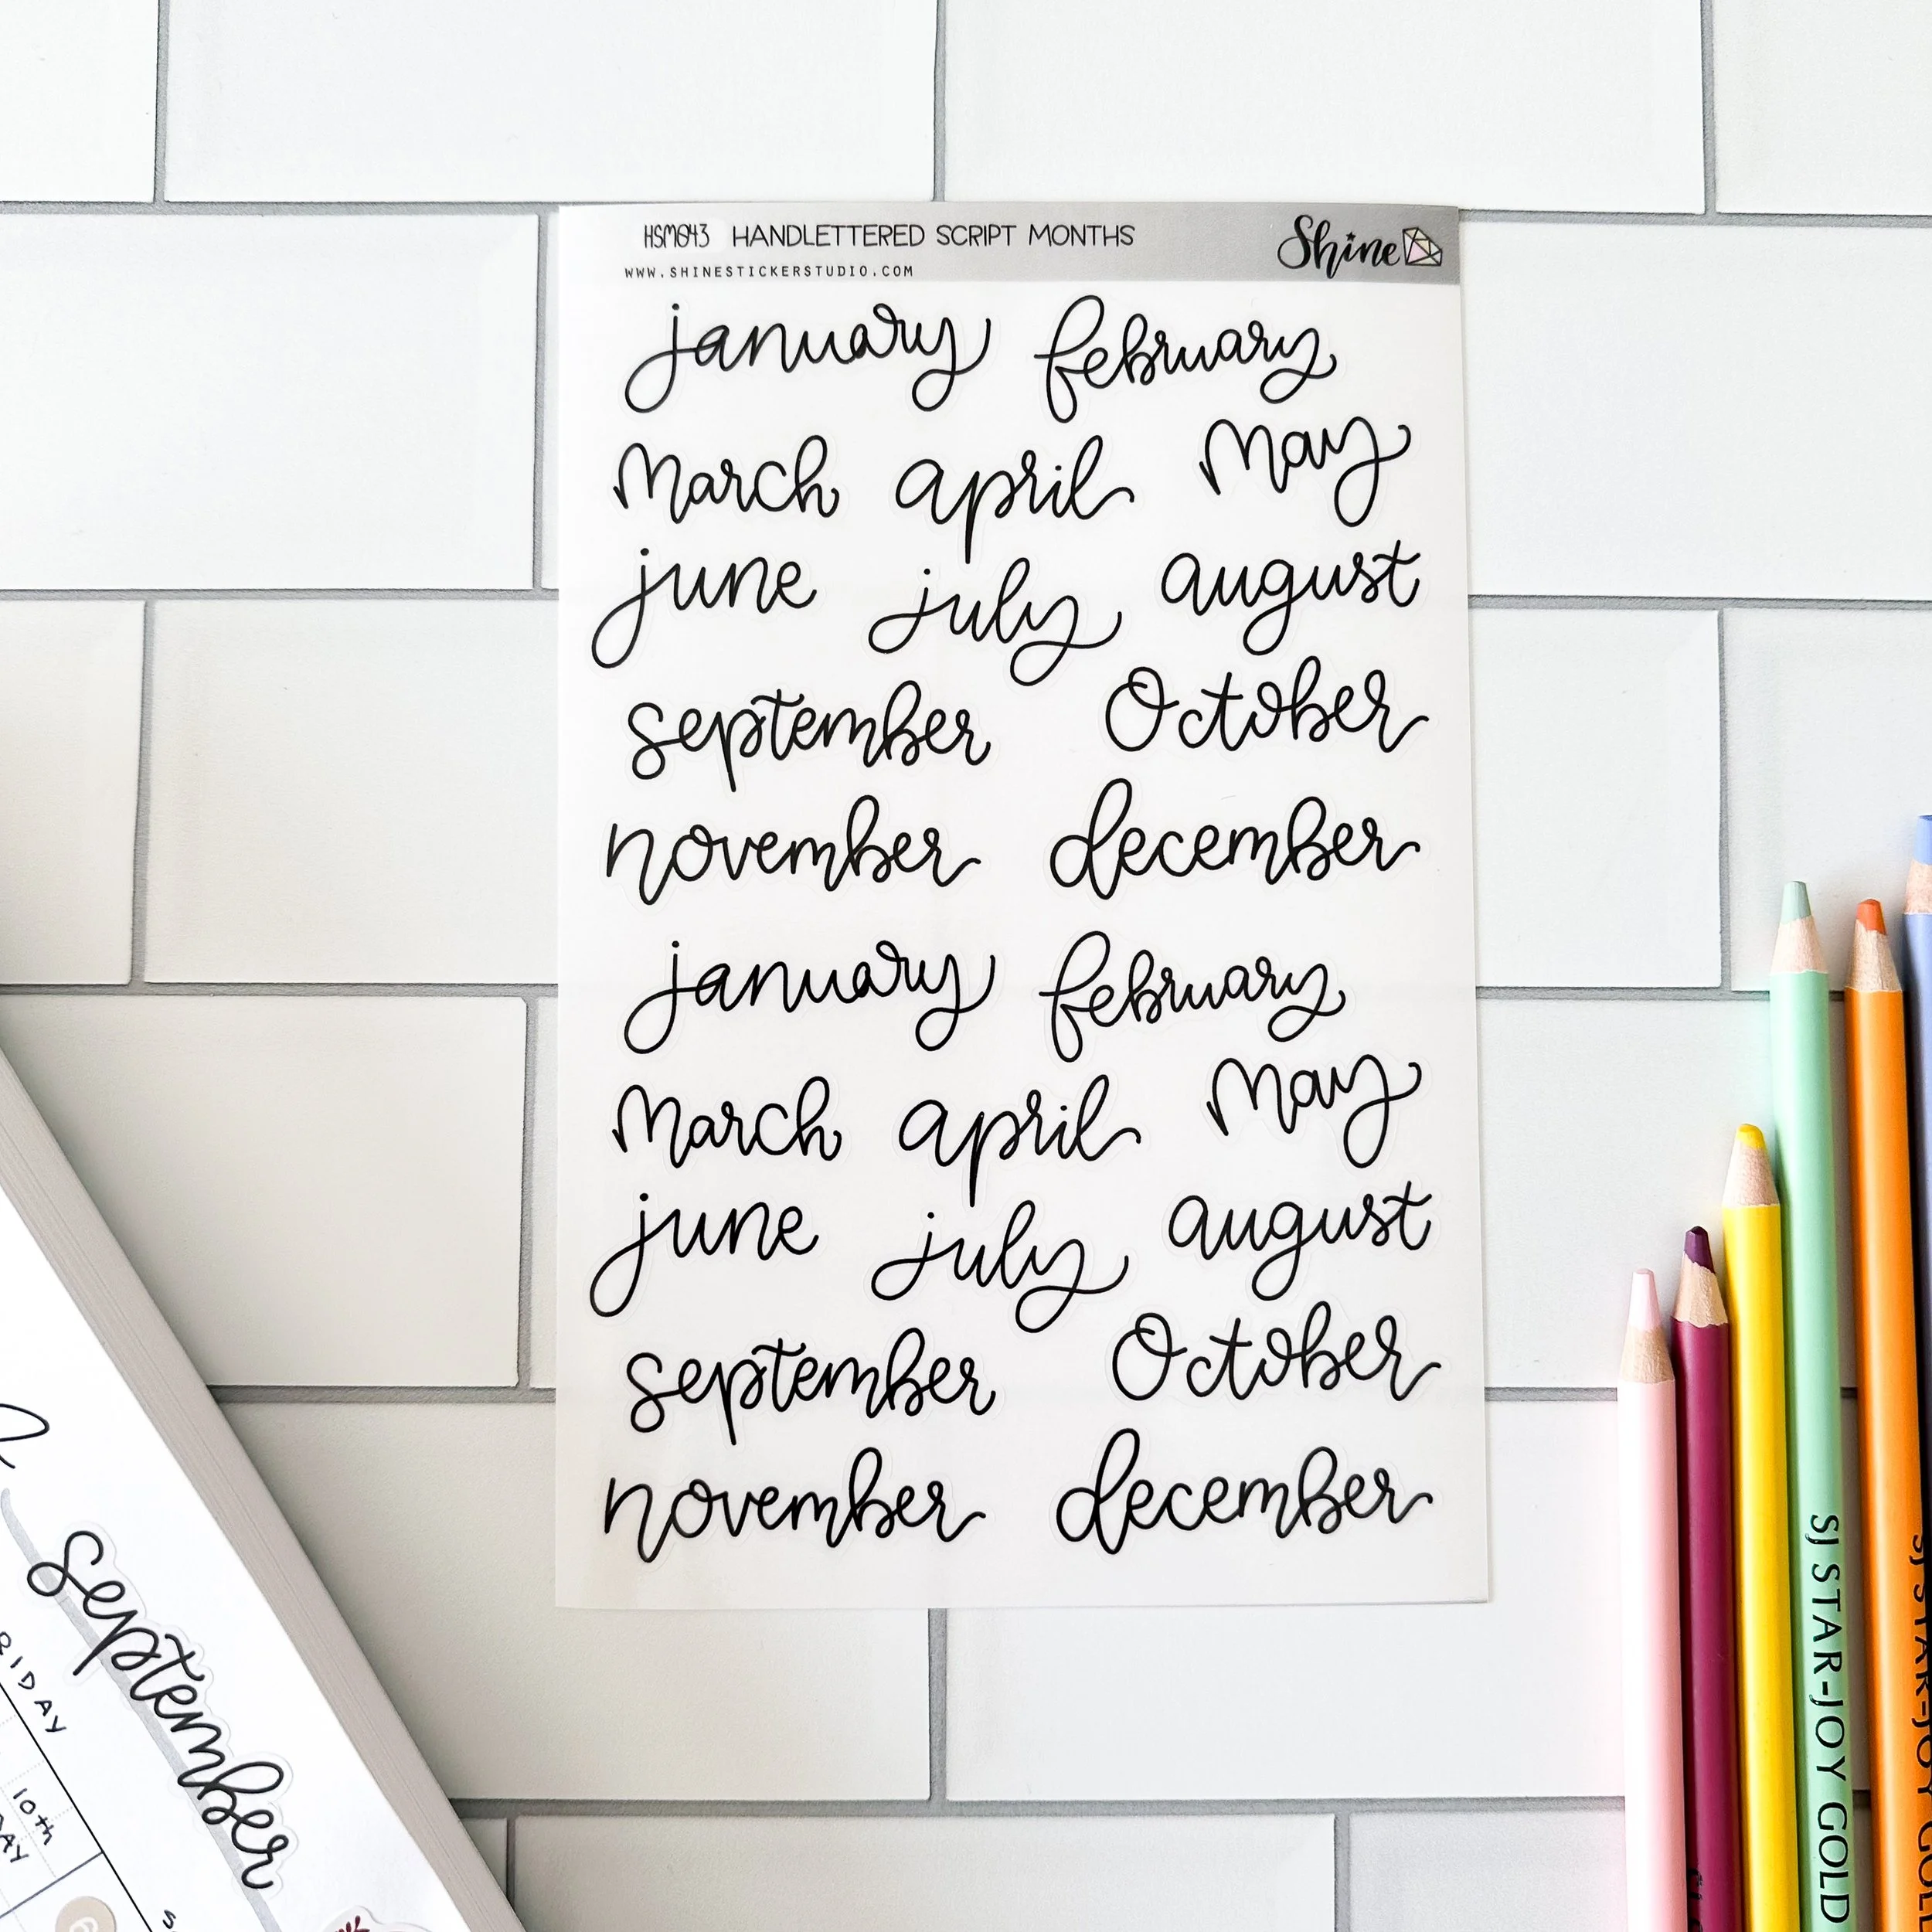 HSM043 HANDLETTERED SCRIPT MONTHS
Shine
WWW.SHINESTICKERSTUDIO.COM
january february
march april may
june july august
september October
november december
january february
march april may
june july august
september October
november december
september
RIDAY
10th
SJ STAR-JOY GOLD
SJ STAR-JOY GOLD